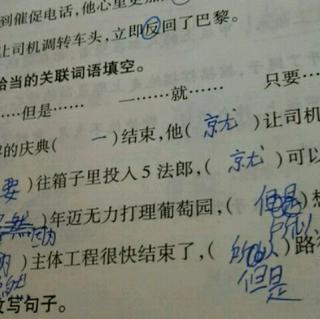 到催促电话,他心里更加
让司机调转车头,立即反回了巴黎。
恰当的关联词语填空。
……但是…… 一……就…… 只要…
的庆典( 一 )结束,他( 就 )让司机
要 )往箱子里投入5法郎,( 就 )可以
)年迈无力打理葡萄园,( 但是 所以 )想
)主体工程很快结束了,( 所以 但是 )路
改写句子。